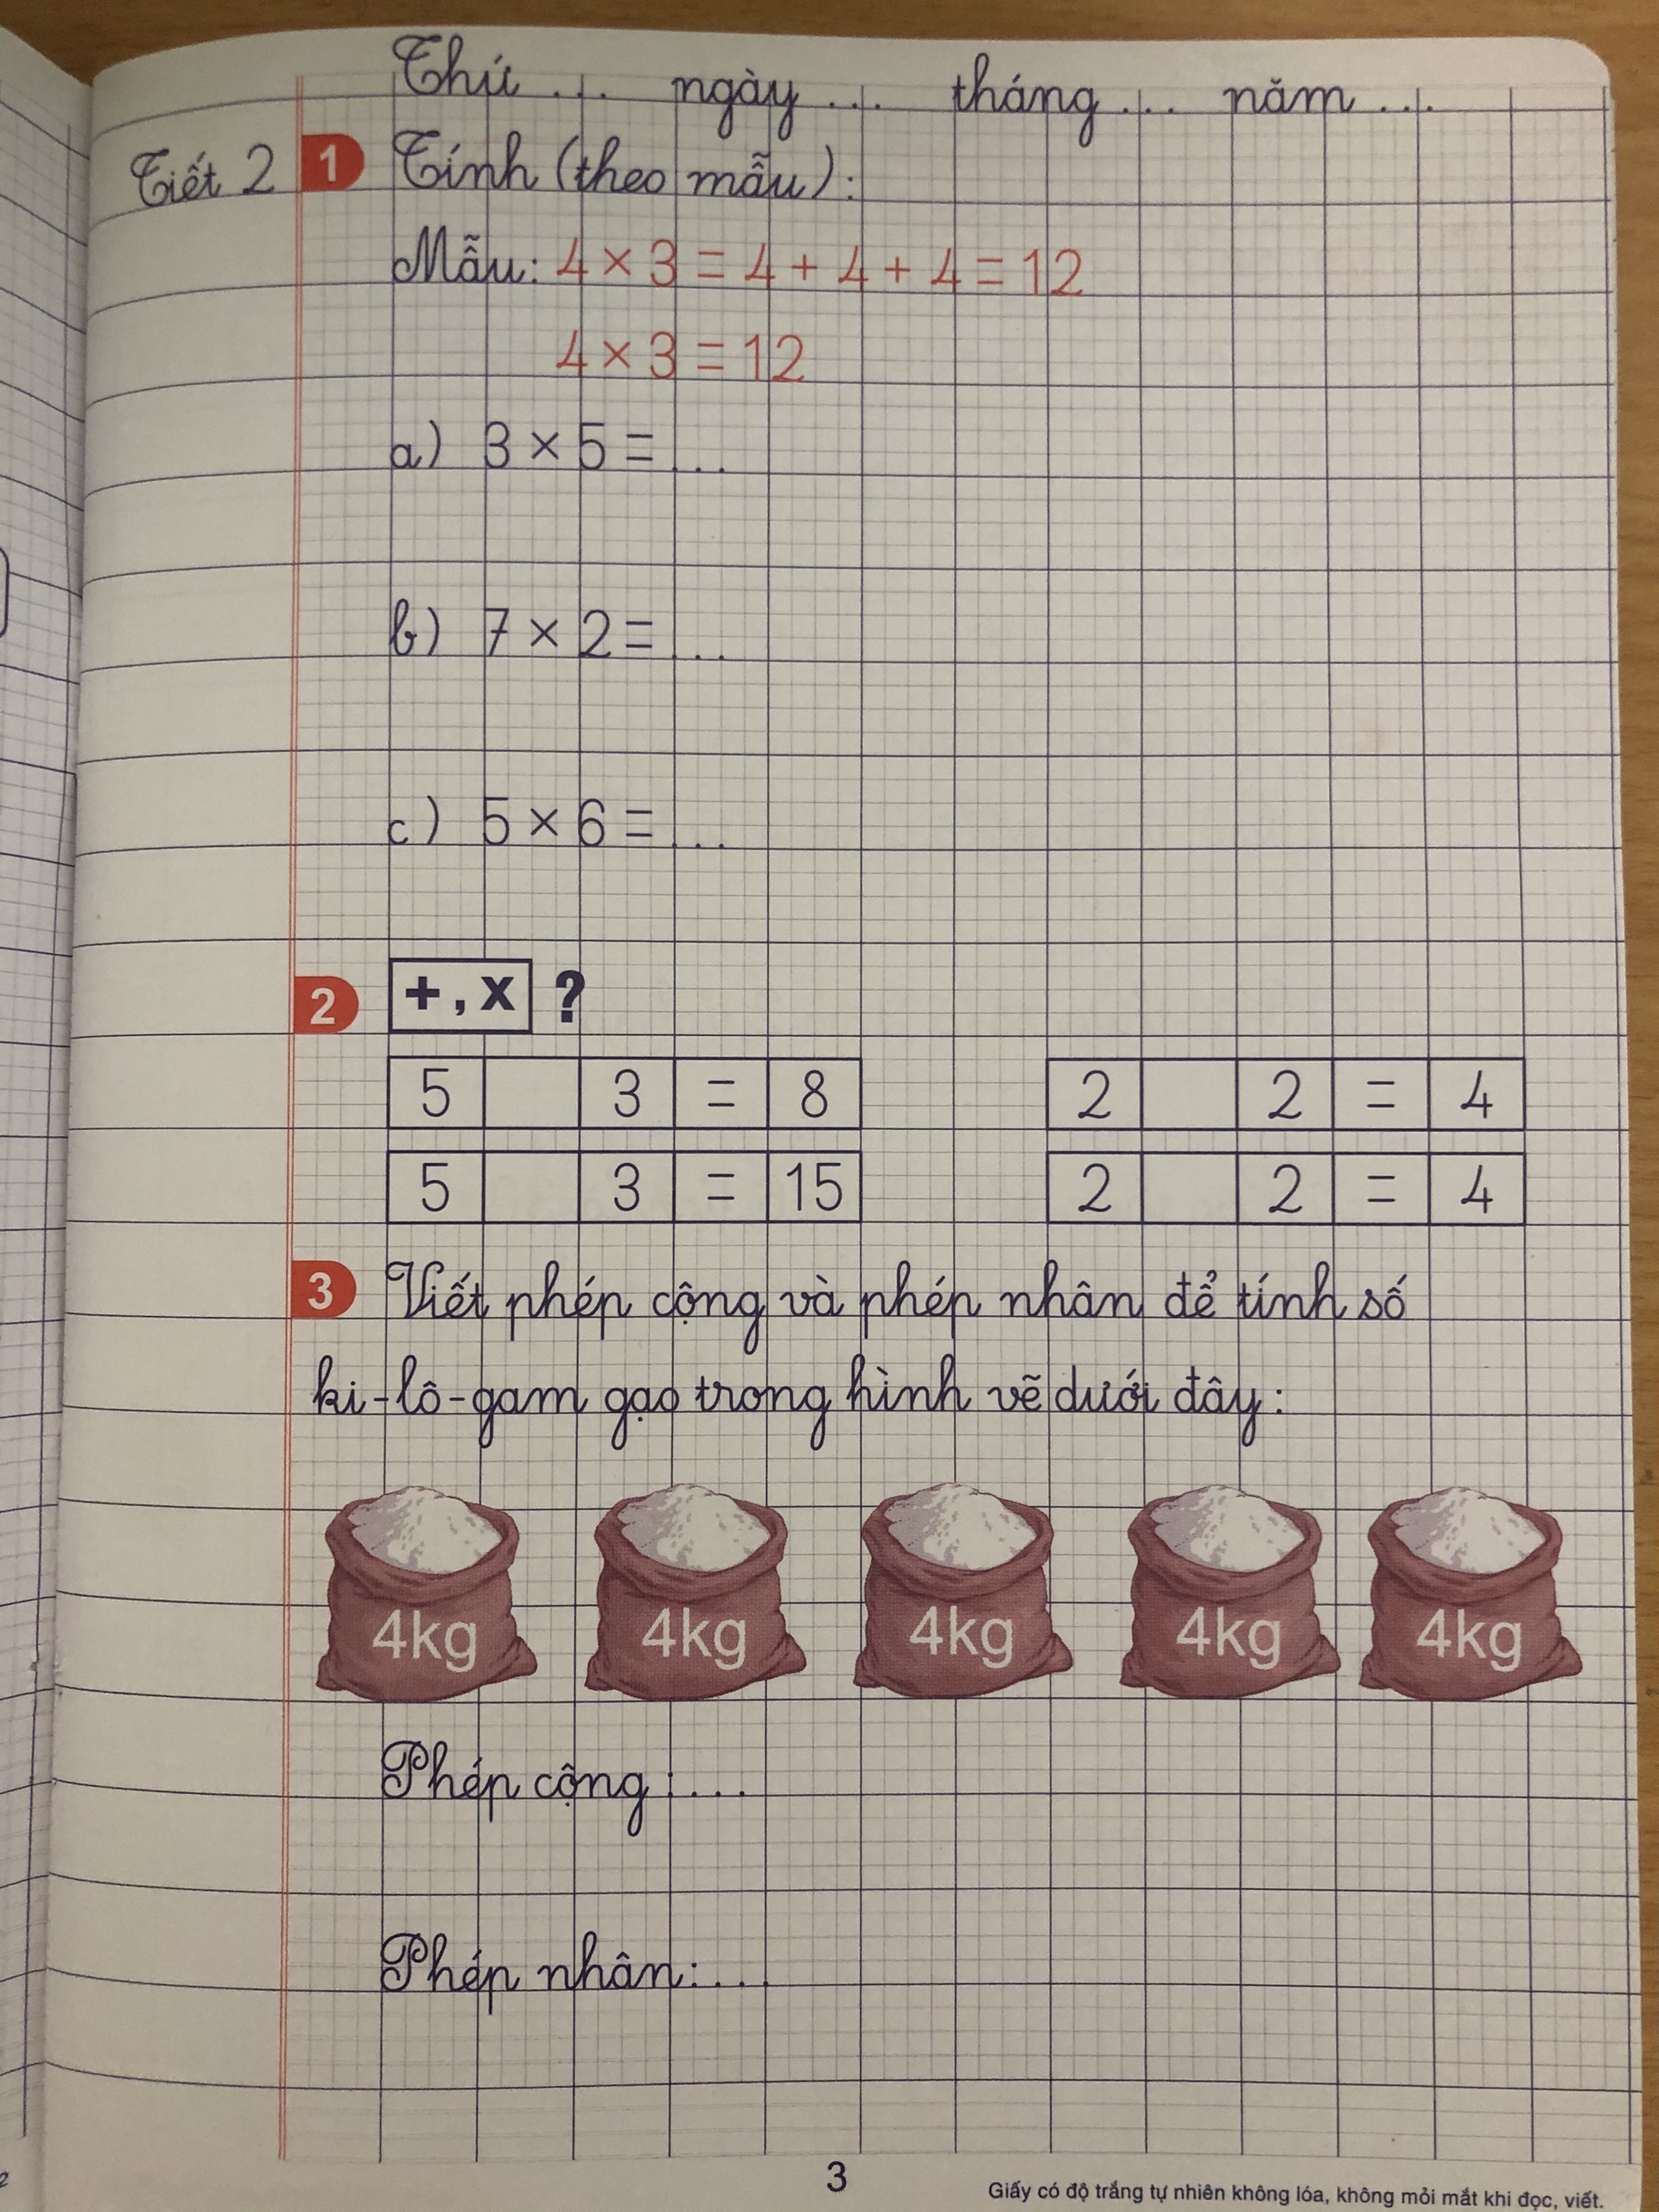 Thứ ... ngày ... tháng ... năm ...
Tiết 2 1 Tính (theo mẫu):
Mẫu: 4 × 3 = 4 + 4 + 4 = 12
4 × 3 = 12
a) 3 × 5 = ...
b) 7 × 2 = ...
c) 5 × 6 = ...
2 +, x ?
5 3 = 8 2 2 = 4
5 3 = 15 2 2 = 4
3 Viết phép cộng và phép nhân để tính số
ki-lô-gam gạo trong hình vẽ dưới đây:
4kg 4kg 4kg 4kg 4kg
Phép cộng: ...
Phép nhân: ...
3
Giấy có độ trắng tự nhiên không lóa, không mỏi mắt khi đọc, viết.